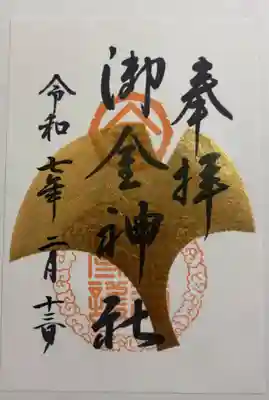 奉拝
御金神社
令和七年 二月 十三日